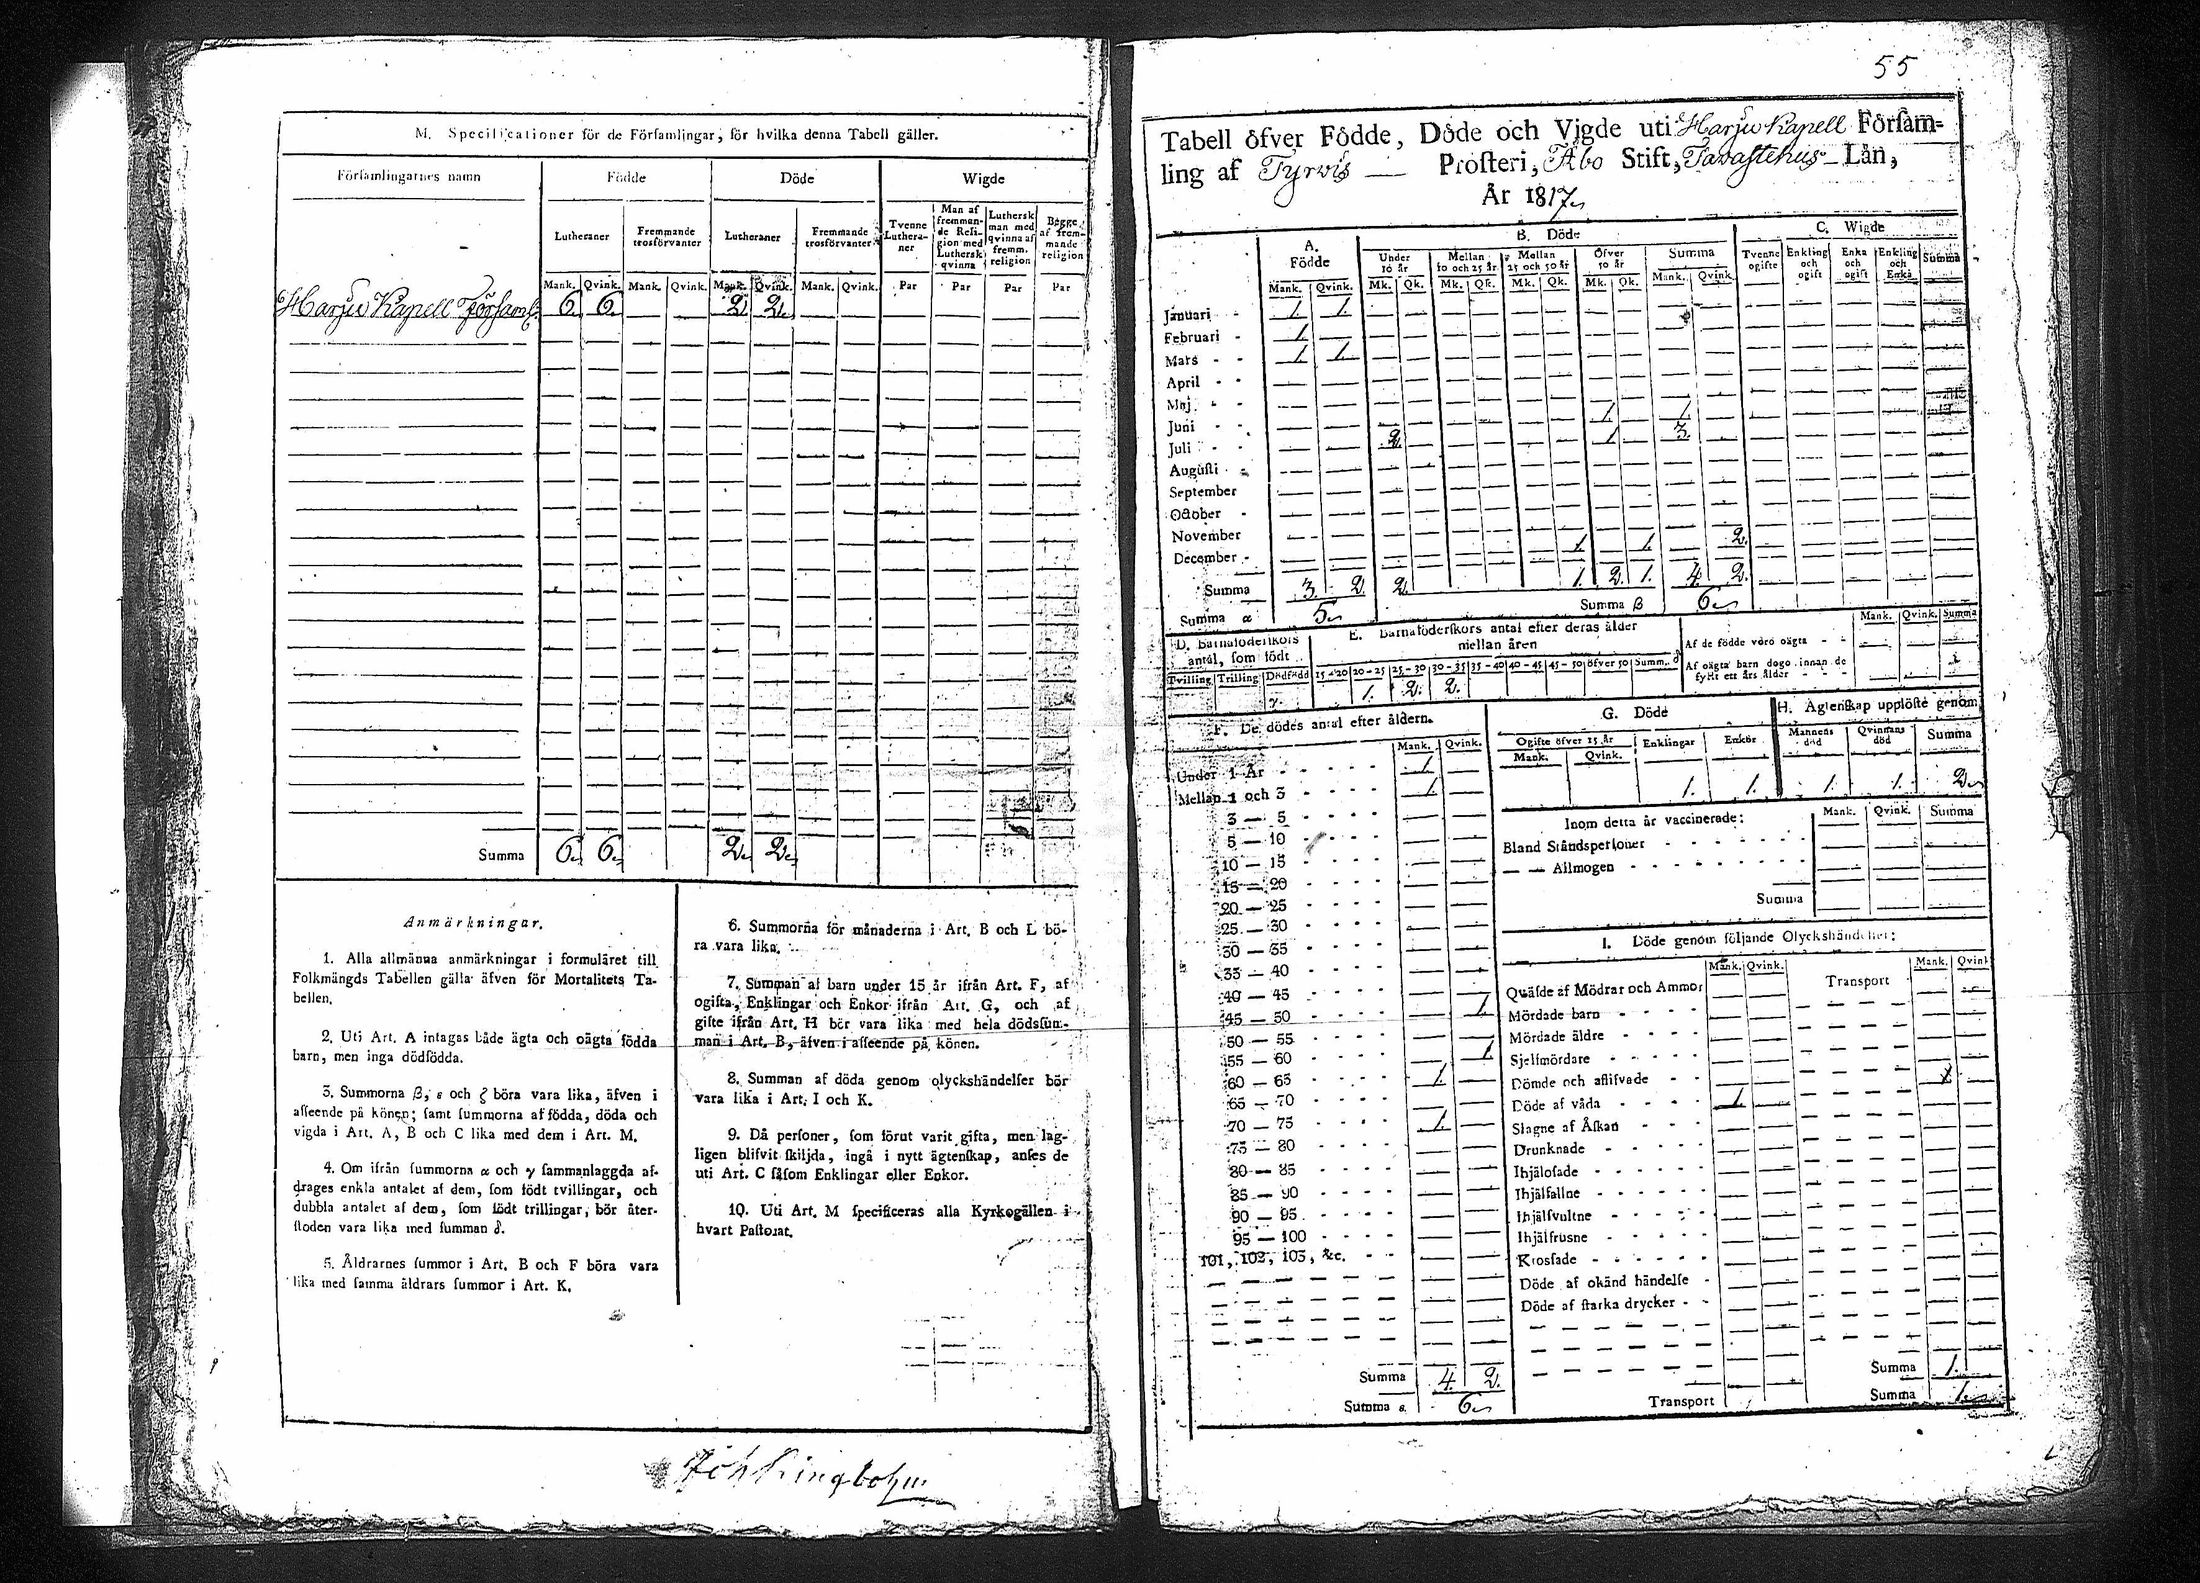 M. Specificationer för de Församlingar, för hvilka denna Tabell gäller.
Församlingarnes namn Födde Döde Wigde
Lutheraner Fremmande trosförvanter Lutheraner Fremmande trosförvanter Tvenne Lutheraner Man af fremmande Religion med Luthersk qvinna Luthersk man med qvinna af fremm. religion Begge af fremmande religion
Mank. Qvink. Mank. Qvink. Mank. Qvink. Mank. Qvink. Par Par Par Par
Harju Kapell Församl. 6. 6. 2. 2.
Summa 6. 6. 2. 2.
Anmärkningar.
1. Alla allmänna anmärkningar i formuläret till
Folkmängds Tabellen gälla äfven för Mortalitets Ta-
bellen.
2. Uti Art. A intagas både ägta och oägta födda
barn, men inga dödfödda.
3. Summorna β, ε och ζ böra vara lika, äfven i
afseende på könen; samt summorna af födda, döda och
vigda i Art. A, B och C lika med dem i Art. M.
4. Om ifrån summorna α och γ sammanlaggda af-
drages enkla antalet af dem, som födt tvillingar, och
dubbla antalet af dem, som födt trillingar, bör åter-
stoden vara lika med summan δ.
5. Åldrarnes summor i Art. B och F böra vara
lika med samma åldrars summor i Art. K.
6. Summorna för månaderna i Art. B och L bö-
ra vara lika.
7. Summan af barn under 15 år ifrån Art. F, af
ogifta, Enklingar och Enkor ifrån Art. G, och af
gifte ifrån Art. H bör vara lika med hela dödssum-
man i Art. B, äfven i afseende på könen.
8. Summan af döda genom olyckshändelser bör
vara lika i Art. I och K.
9. Då personer, som förut varit gifta, men lag-
ligen blifvit skiljda, ingå i nytt ägtenskap, anses de
uti Art. C såsom Enklingar eller Enkor.
10. Uti Art. M specificeras alla Kyrkogällen i
hvart Pastorat.
55
Tabell öfver Födde, Döde och Vigde uti Harju Kapell Försams-
ling af Tyrvis Prosteri, Åbo Stift, Tavastehus Län,
År 1817
A. Födde B. Döde C. Wigde
Under 10 år Mellan 10 och 25 år Mellan 25 och 50 år Öfver 50 år Summa Tvenne ogifte Enkling och ogift Enka och ogift Enkling och Enka Summa
Mank. Qvink. Mk. Qk. Mk. Qk. Mk. Qk. Mk. Qk. Mank. Qvink.
Januari 1. 1.
Februari 1.
Mars 1. 1.
April
Maj
Juni 1. 1.
Juli 2. 1. 3.
Augusti
September
October
November
December 1. 1. 2.
Summa 3. 2. 2. 1. 2. 1. 4. 2.
Summa α 5 Summa β 6
D. Barnaföderskors antal, som födt
Tvilling Trilling Dödfödd
E. Barnaföderskors antal efter deras ålder mellan åren
15-20 20-25 25-30 30-35 35-40 40-45 45-50 öfver 50 Summ. δ
1. 2. 2.
Mank. Qvink. Summa
Af de födde voro oägta
Af oägta barn dogo innan de fyllt ett års ålder
F. De dödes antal efter åldern.
Mank. Qvink.
Under 1 År 1
Mellan 1 och 3 1.
3 — 5
5 — 10
10 — 15
15 — 20
20 — 25
25 — 30
30 — 35
35 — 40
40 — 45
45 — 50 1.
50 — 55
55 — 60 1.
60 — 65 1.
65 — 70
70 — 75 1.
75 — 80
80 — 85
85 — 90
90 — 95
95 — 100
101, 102, 103, &c.
Summa 4. 2.
Summa ε. 6
G. Döde
Ogifte öfver 15 år Enklingar Enkor
Mank. Qvink.
1. 1.
H. Ägtenskap upplöste genom
Mannens död Qvinnans död Summa
1. 1. 2
Inom detta år vaccinerade: Mank. Qvink. Summa
Bland Ståndspersoner
— — Allmogen
Summa
I. Döde genom följande Olyckshändelser:
Mank. Qvink. Transport Mank. Qvink
Quäfde af Mödrar och Ammor
Mördade barn
Mördade äldre
Sjelfmördare
Dömde och aflifvade
Döde af våda 1.
Slagne af Åskan
Drunknade
Ihjälosade
Ihjälfallne
Ihjälsvultne
Ihjälfrusne
Krossade
Döde af okänd händelse
Döde af starka drycker
Summa 1.
Transport Summa 1.